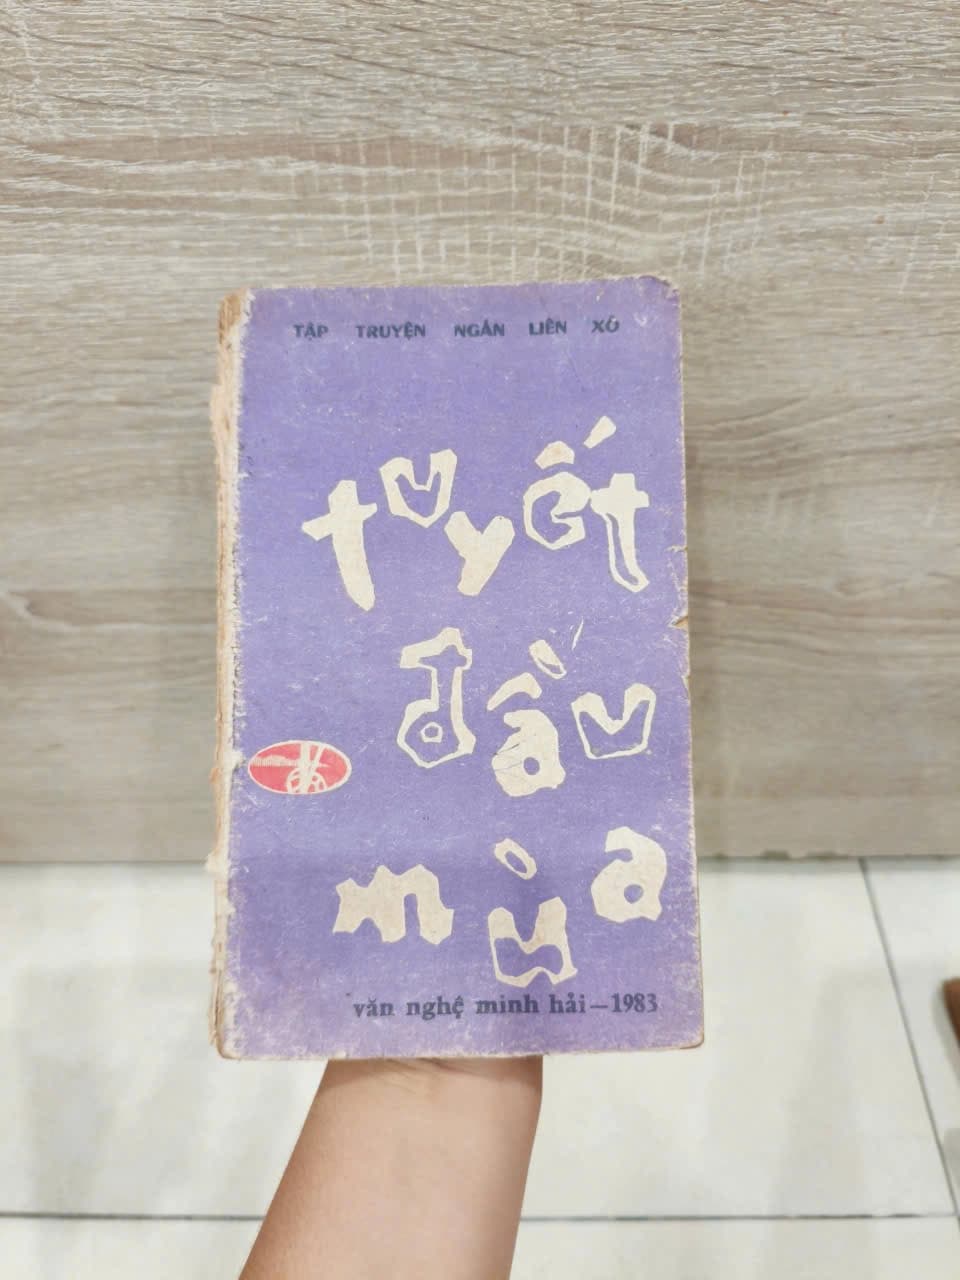 TẬP TRUYỆN NGẮN LIÊN XÔ
tuyết
đầu
mùa
văn nghệ minh hải – 1983